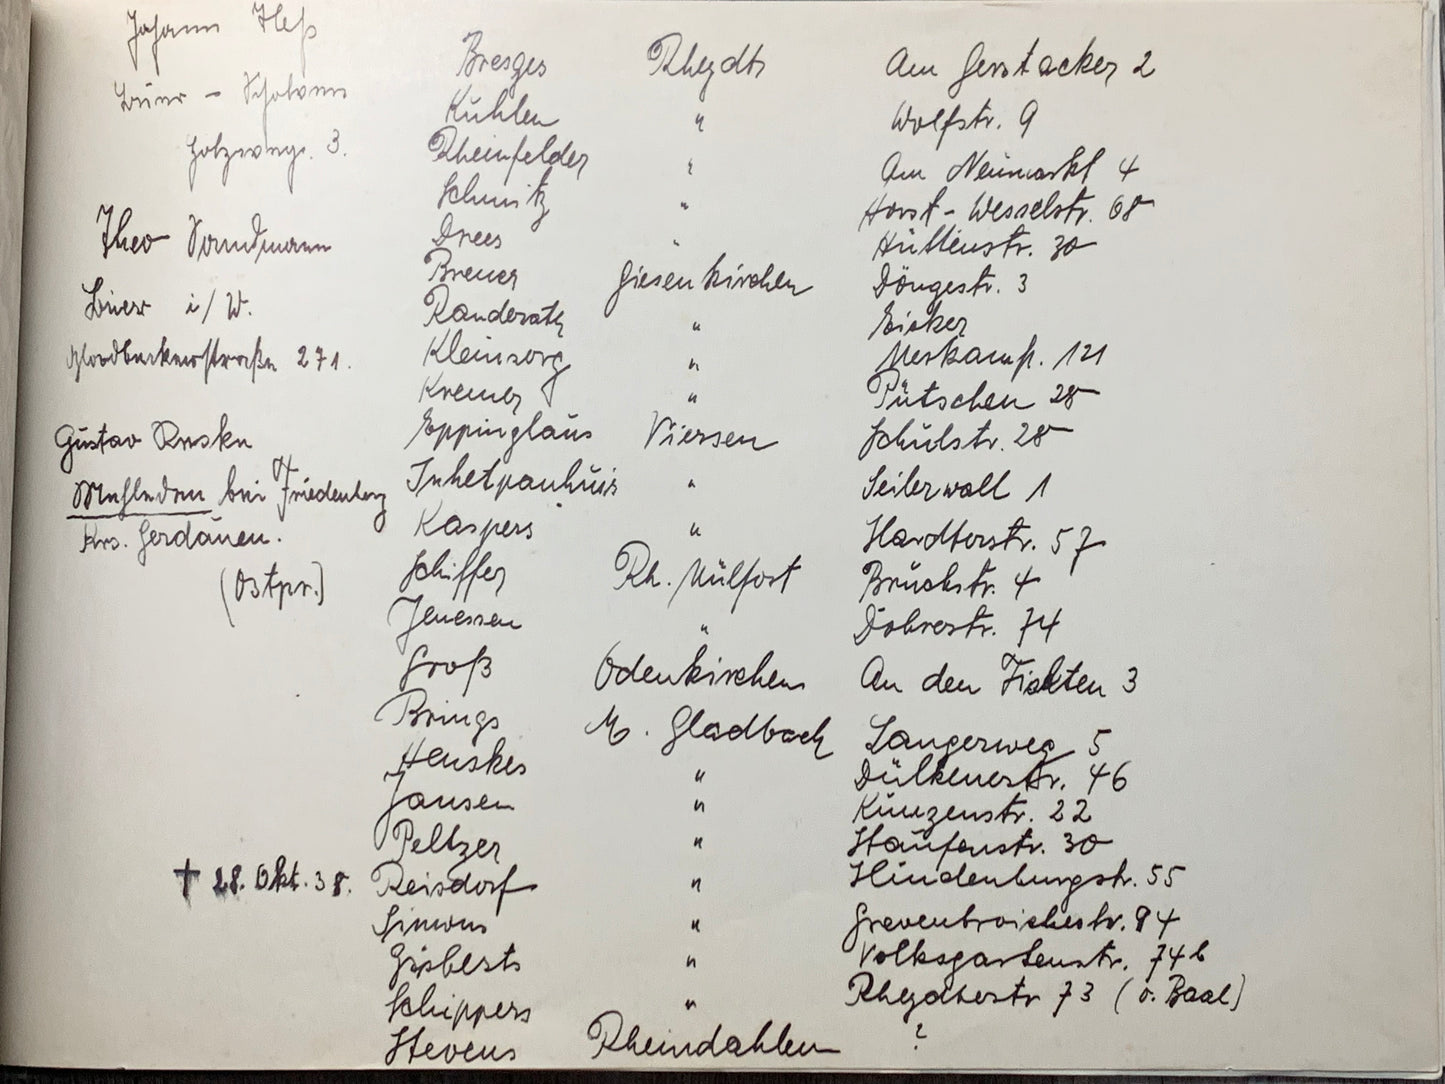 Johann Heß
Bresges Rheydt Am Gerstacker 2
Kühlen " Wolfstr. 9
3.
Rheinfelder " Am Neumarkt 4
Schmitz " Horst-Wesselstr. 68
Theo Sandmann
Drees " Hüttenstr. 30
Breuer Giesenkirchen Döngestr. 3
i/W.
Randerath " Eicker
271.
Kleinsorg " 121
Kremer " Pütschen 28
Gustav
Eppinglaus Viersen Schulstr. 28
bei Friedenberg
Inhetpanhuis " Seilerwall 1
Krs. Gerdauen.
Kaspers " Hardterstr. 57
(Ostpr.)
Schiffer Rh. Mülfort Bruchstr. 4
Jenessen " Dohrerstr. 74
Groß Odenkirchen An den Fichten 3
Brings M. Gladbach Langerweg 5
Henskes " Dülkenerstr. 46
Jansen " Künzenstr. 22
Peltzer " Staufenstr. 30
† 28. Okt. 38. Reisdorf " Hindenburgstr. 55
Simons " Grevenbroicherstr. 94
Gisberts " Volksgartenstr. 74b
Schippers " Rheydterstr 73 (b. Baal)
Stevens Rheindahlen ?